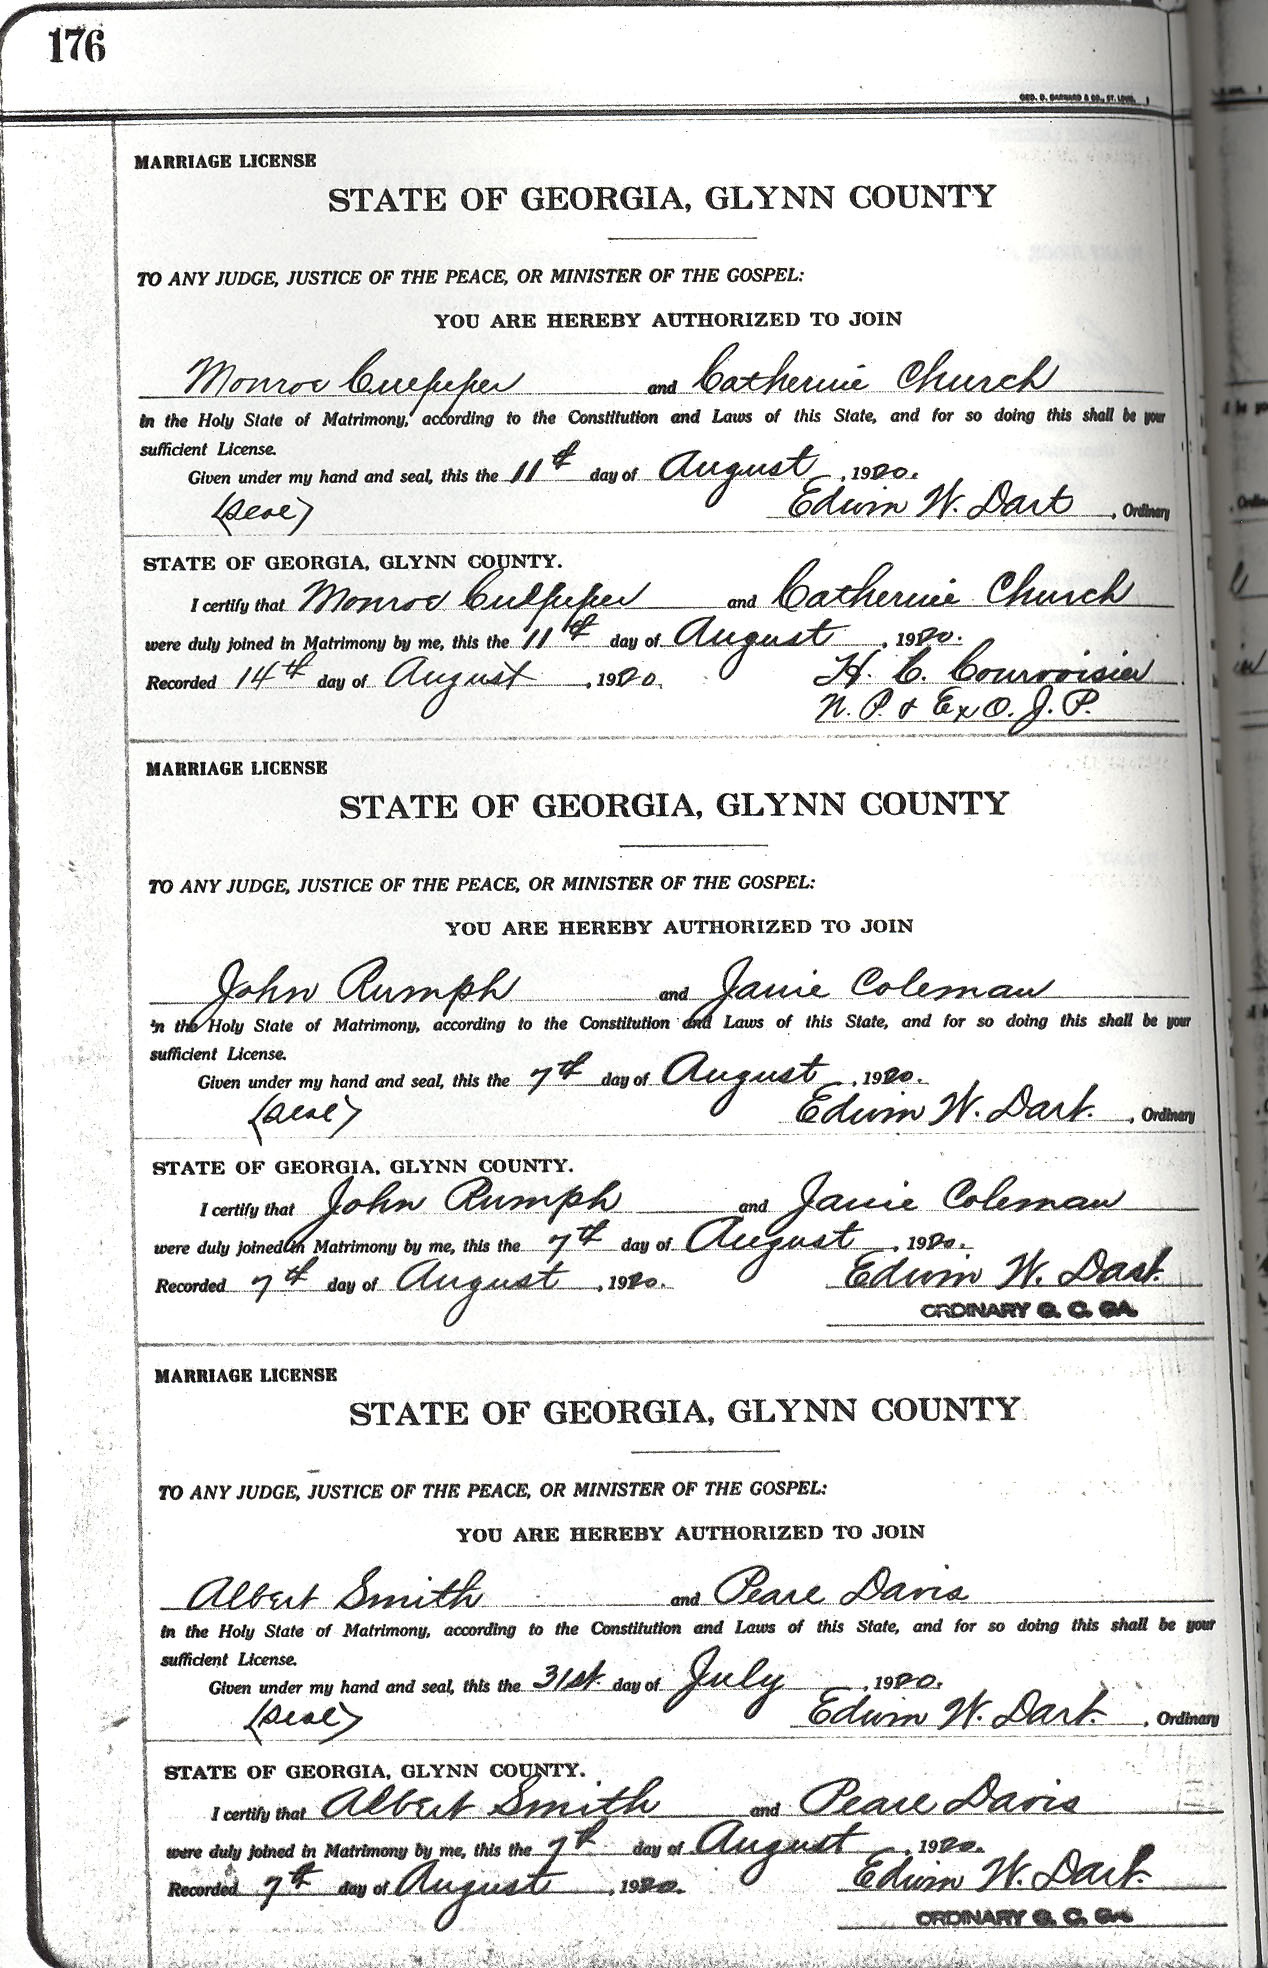 176
GEO. D. BARNARD & CO., ST. LOUIS
MARRIAGE LICENSE
STATE OF GEORGIA, GLYNN COUNTY
TO ANY JUDGE, JUSTICE OF THE PEACE, OR MINISTER OF THE GOSPEL:
YOU ARE HEREBY AUTHORIZED TO JOIN
Monroe Culpeper and Catherine Church
in the Holy State of Matrimony, according to the Constitution and Laws of this State, and for so doing this shall be your
sufficient License.
Given under my hand and seal, this the 11th day of August, 1920.
(Seal) Edwin W. Dart, Ordinary
STATE OF GEORGIA, GLYNN COUNTY.
I certify that Monroe Culpeper and Catherine Church
were duly joined in Matrimony by me, this the 11th day of August, 1920.
Recorded 14th day of August, 1920. H. C. Courvoisier
N. P. & Ex O. J. P.
MARRIAGE LICENSE
STATE OF GEORGIA, GLYNN COUNTY
TO ANY JUDGE, JUSTICE OF THE PEACE, OR MINISTER OF THE GOSPEL:
YOU ARE HEREBY AUTHORIZED TO JOIN
John Rumph and Janie Coleman
in the Holy State of Matrimony, according to the Constitution and Laws of this State, and for so doing this shall be your
sufficient License.
Given under my hand and seal, this the 7th day of August, 1920.
(Seal) Edwin W. Dart., Ordinary
STATE OF GEORGIA, GLYNN COUNTY.
I certify that John Rumph and Janie Coleman
were duly joined in Matrimony by me, this the 7th day of August, 1920.
Recorded 7th day of August, 1920. Edwin W. Dart.
ORDINARY G. C. GA.
MARRIAGE LICENSE
STATE OF GEORGIA, GLYNN COUNTY
TO ANY JUDGE, JUSTICE OF THE PEACE, OR MINISTER OF THE GOSPEL:
YOU ARE HEREBY AUTHORIZED TO JOIN
Albert Smith and Pearl Davis
in the Holy State of Matrimony, according to the Constitution and Laws of this State, and for so doing this shall be your
sufficient License.
Given under my hand and seal, this the 31st. day of July, 1920.
(Seal) Edwin W. Dart., Ordinary
STATE OF GEORGIA, GLYNN COUNTY.
I certify that Albert Smith and Pearl Davis
were duly joined in Matrimony by me, this the 7th day of August, 1920.
Recorded 7th day of August, 1920. Edwin W. Dart.
ORDINARY G. C. GA